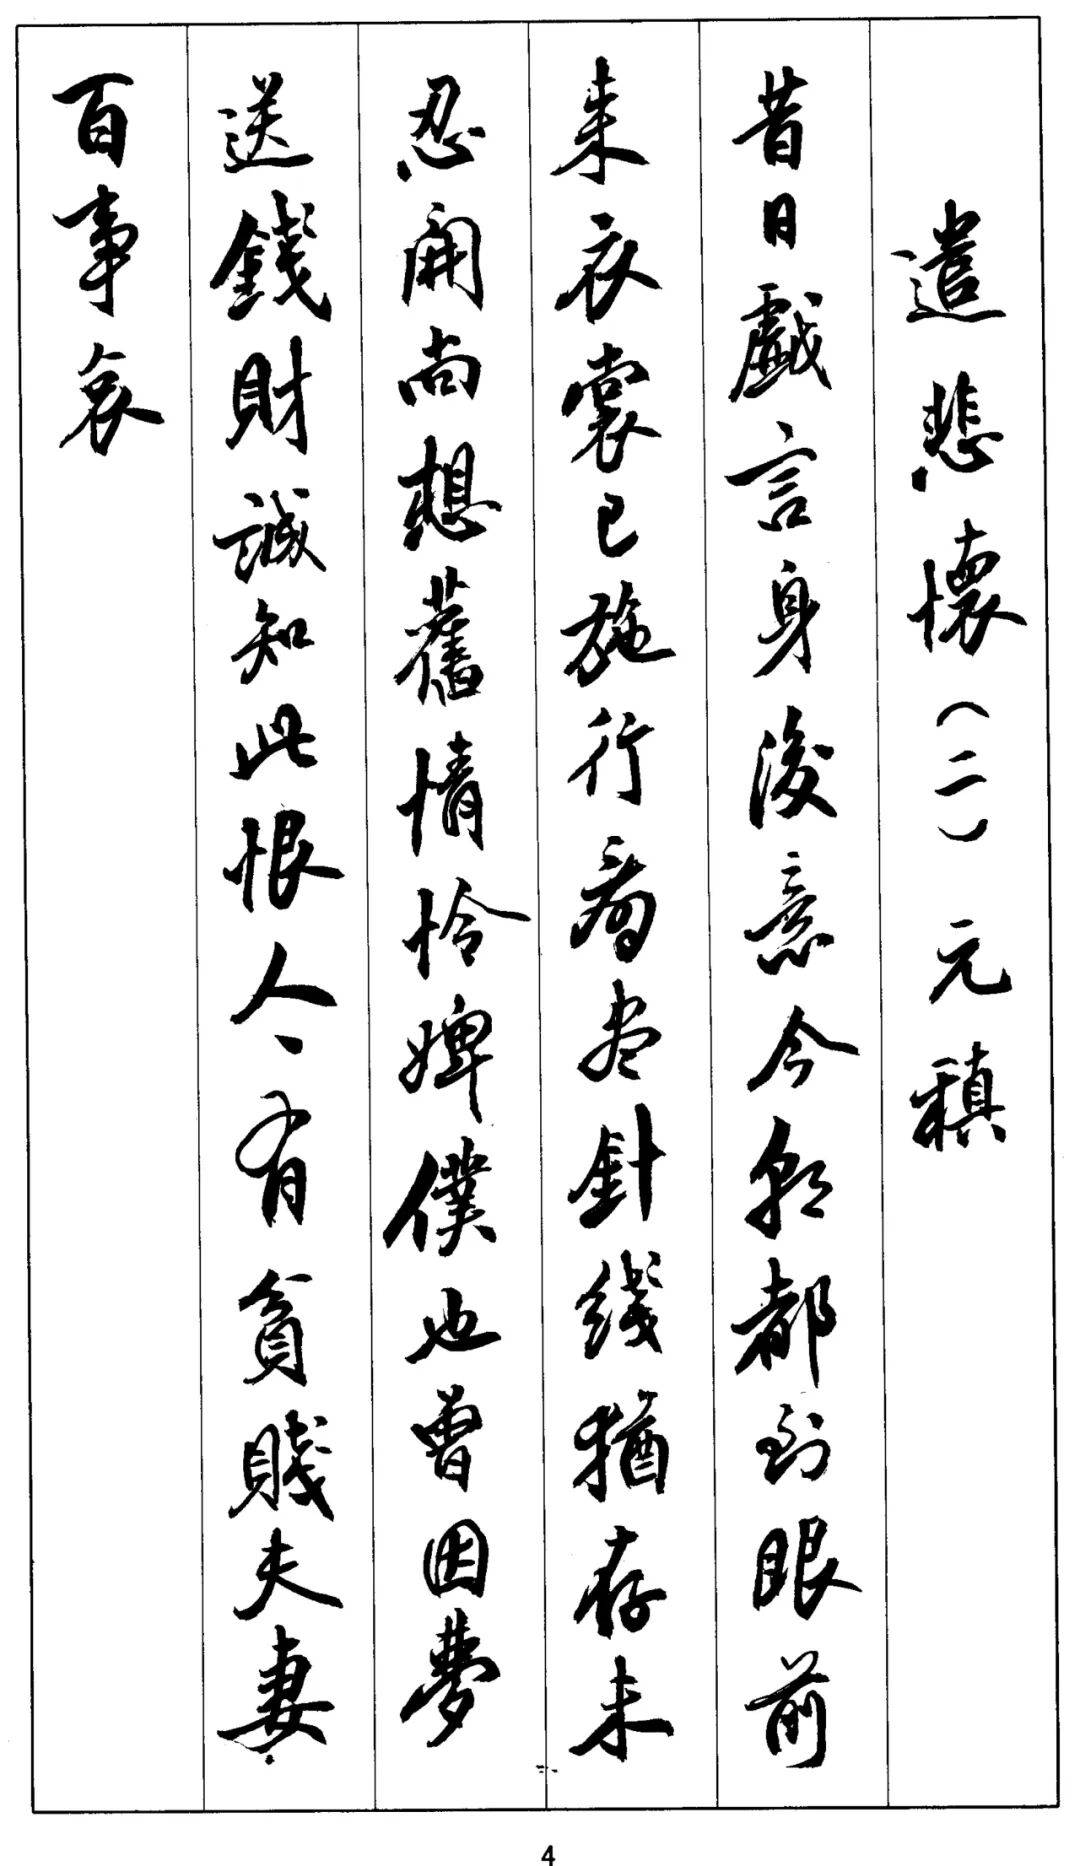 遣悲懷（二）元稹
昔日戲言身後意今朝都到眼前
来衣裳已施行看尽針綫猶存未
忍開尚想舊情怜婢僕也曾因夢
送錢財誠知此恨人、有貧賤夫妻
百事哀
4